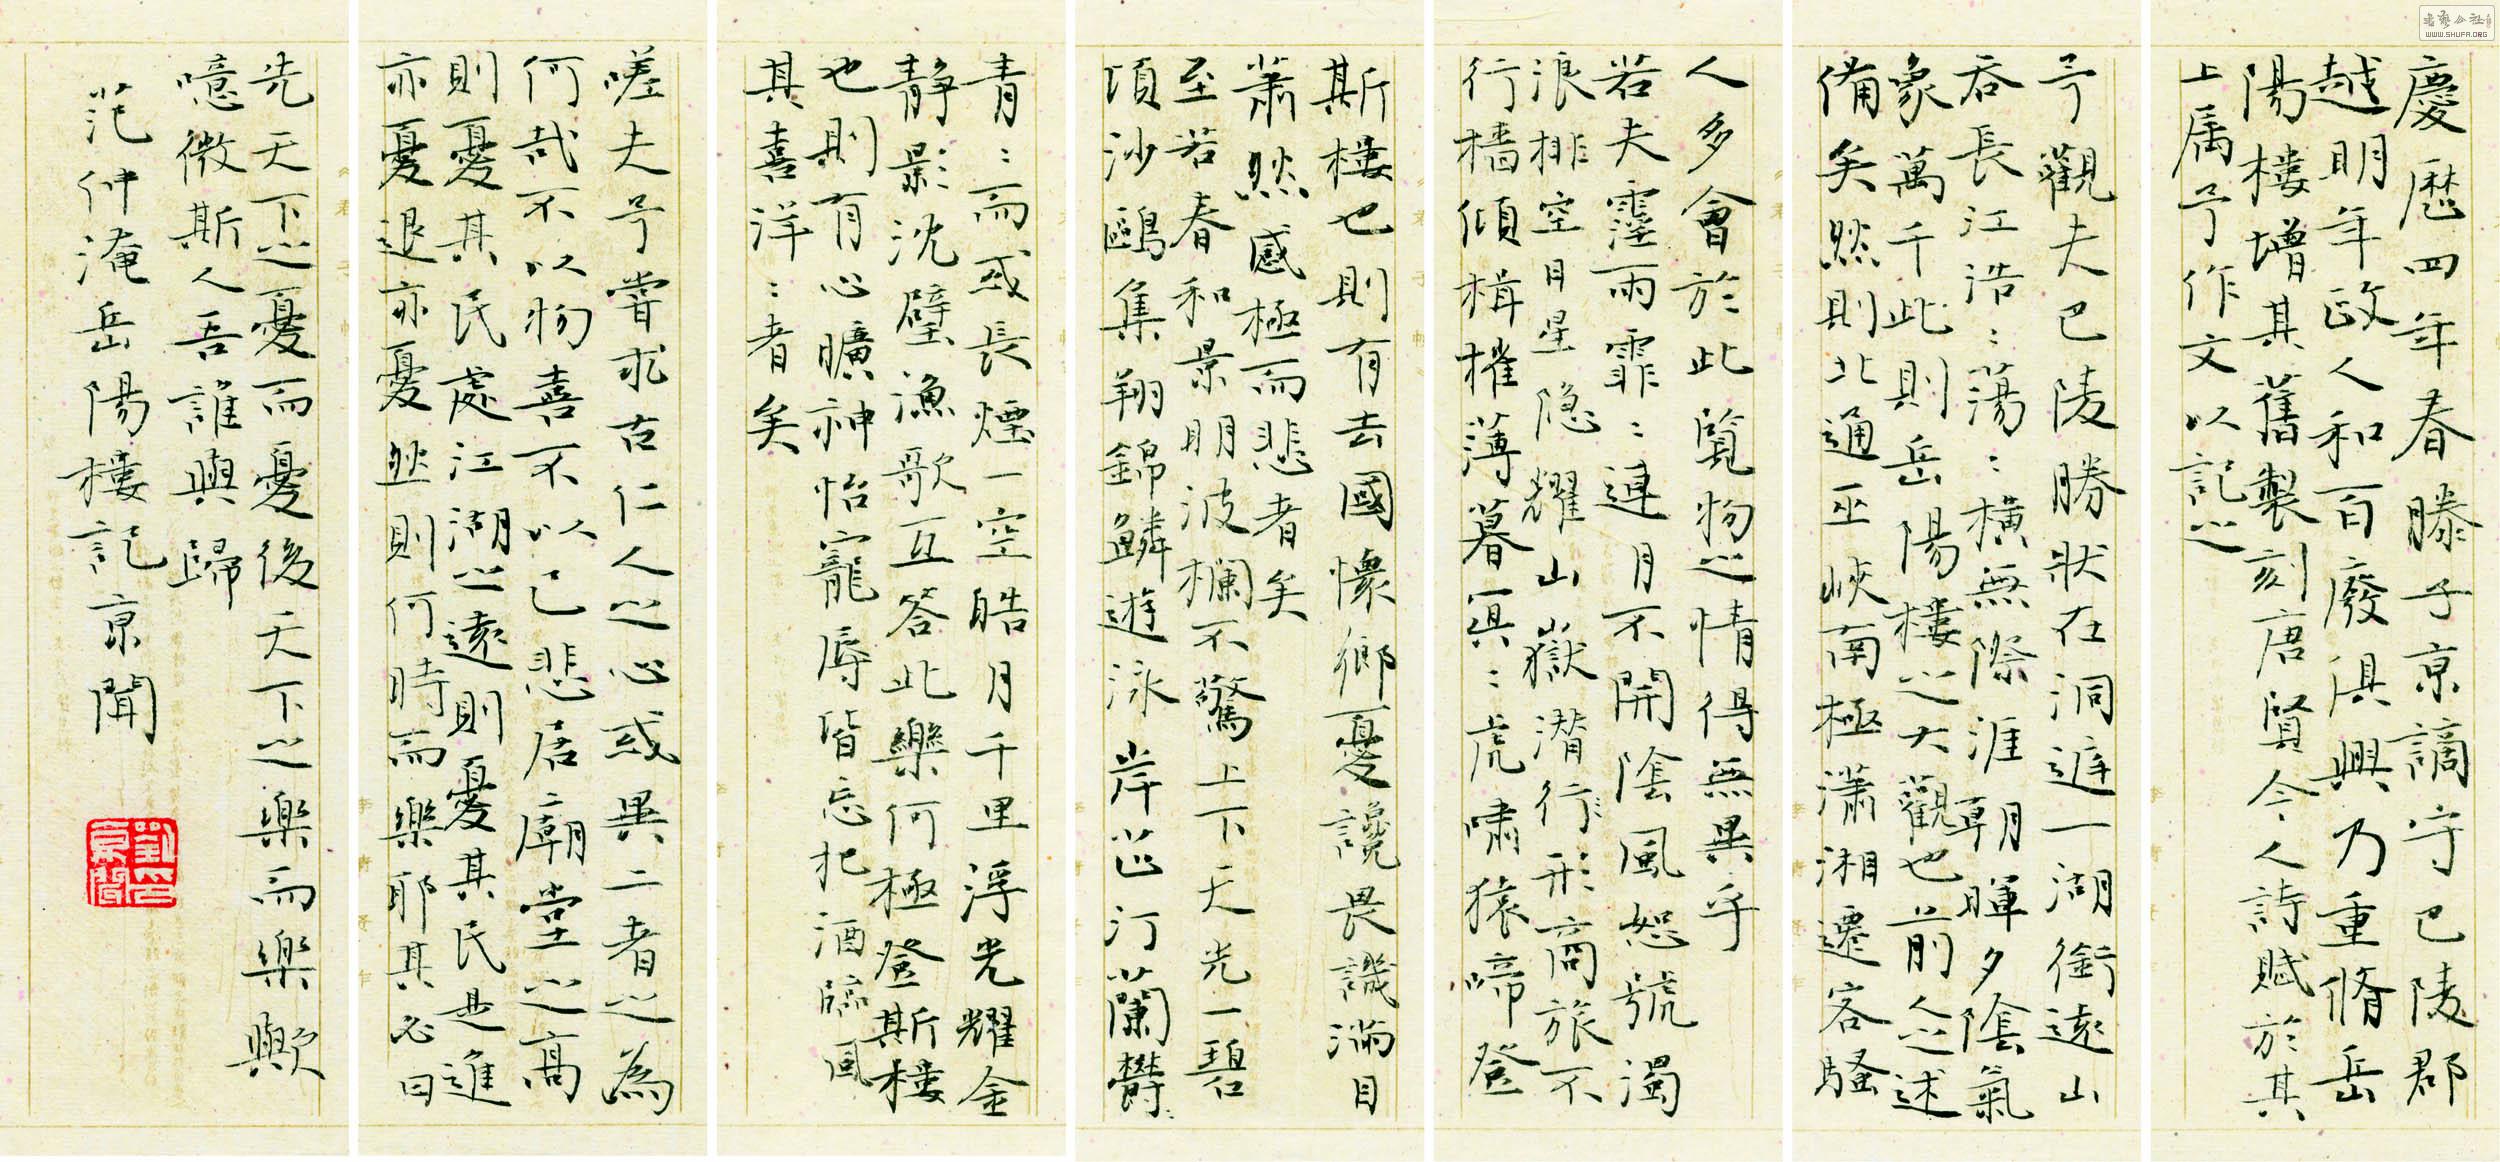 慶歷四年春滕子京謫守巴陵郡
越明年政人和百廢俱興乃重脩岳
陽樓增其舊製刻唐賢今人詩賦於其
上属予作文以記之
予觀夫巴陵勝狀在洞庭一湖銜遠山
吞長江浩：蕩：橫無際涯朝暉夕陰氣
象萬千此則岳陽樓之大觀也前人之述
備矣然則北通巫峽南極瀟湘遷客騷
人多會於此覧物之情得無異乎
若夫霪雨霏：連月不開陰風怒號濁
浪排空日星隐耀山嶽潛行形商旅不
行檣傾楫摧薄暮冥：虎嘯猿啼登
斯樓也則有去國懷鄉憂讒畏譏滿目
蕭然感極而悲者矣
至若春和景明波欄不驚上下天光一碧
頃沙鷗集翔錦鱗遊泳岸芷汀蘭鬱：
青：而或長煙一空皓月千里浮光耀金
靜影沈璧漁歌互答此樂何極登斯樓
也則有心曠神怡寵辱皆忘把酒臨風
其喜洋：者矣
嗟夫予嘗求古仁人之心或異二者之為
何哉不以物喜不以己悲居廟堂之高
則憂其民處江湖之遠則憂其民是進
亦憂退亦憂然則何時而樂耶其必曰
先天下之憂而憂後天下之樂而樂歟
噫微斯人吾誰與歸
范仲淹岳陽樓記京聞
劉印京聞
书艺公社
WWW.SHUFA.ORG